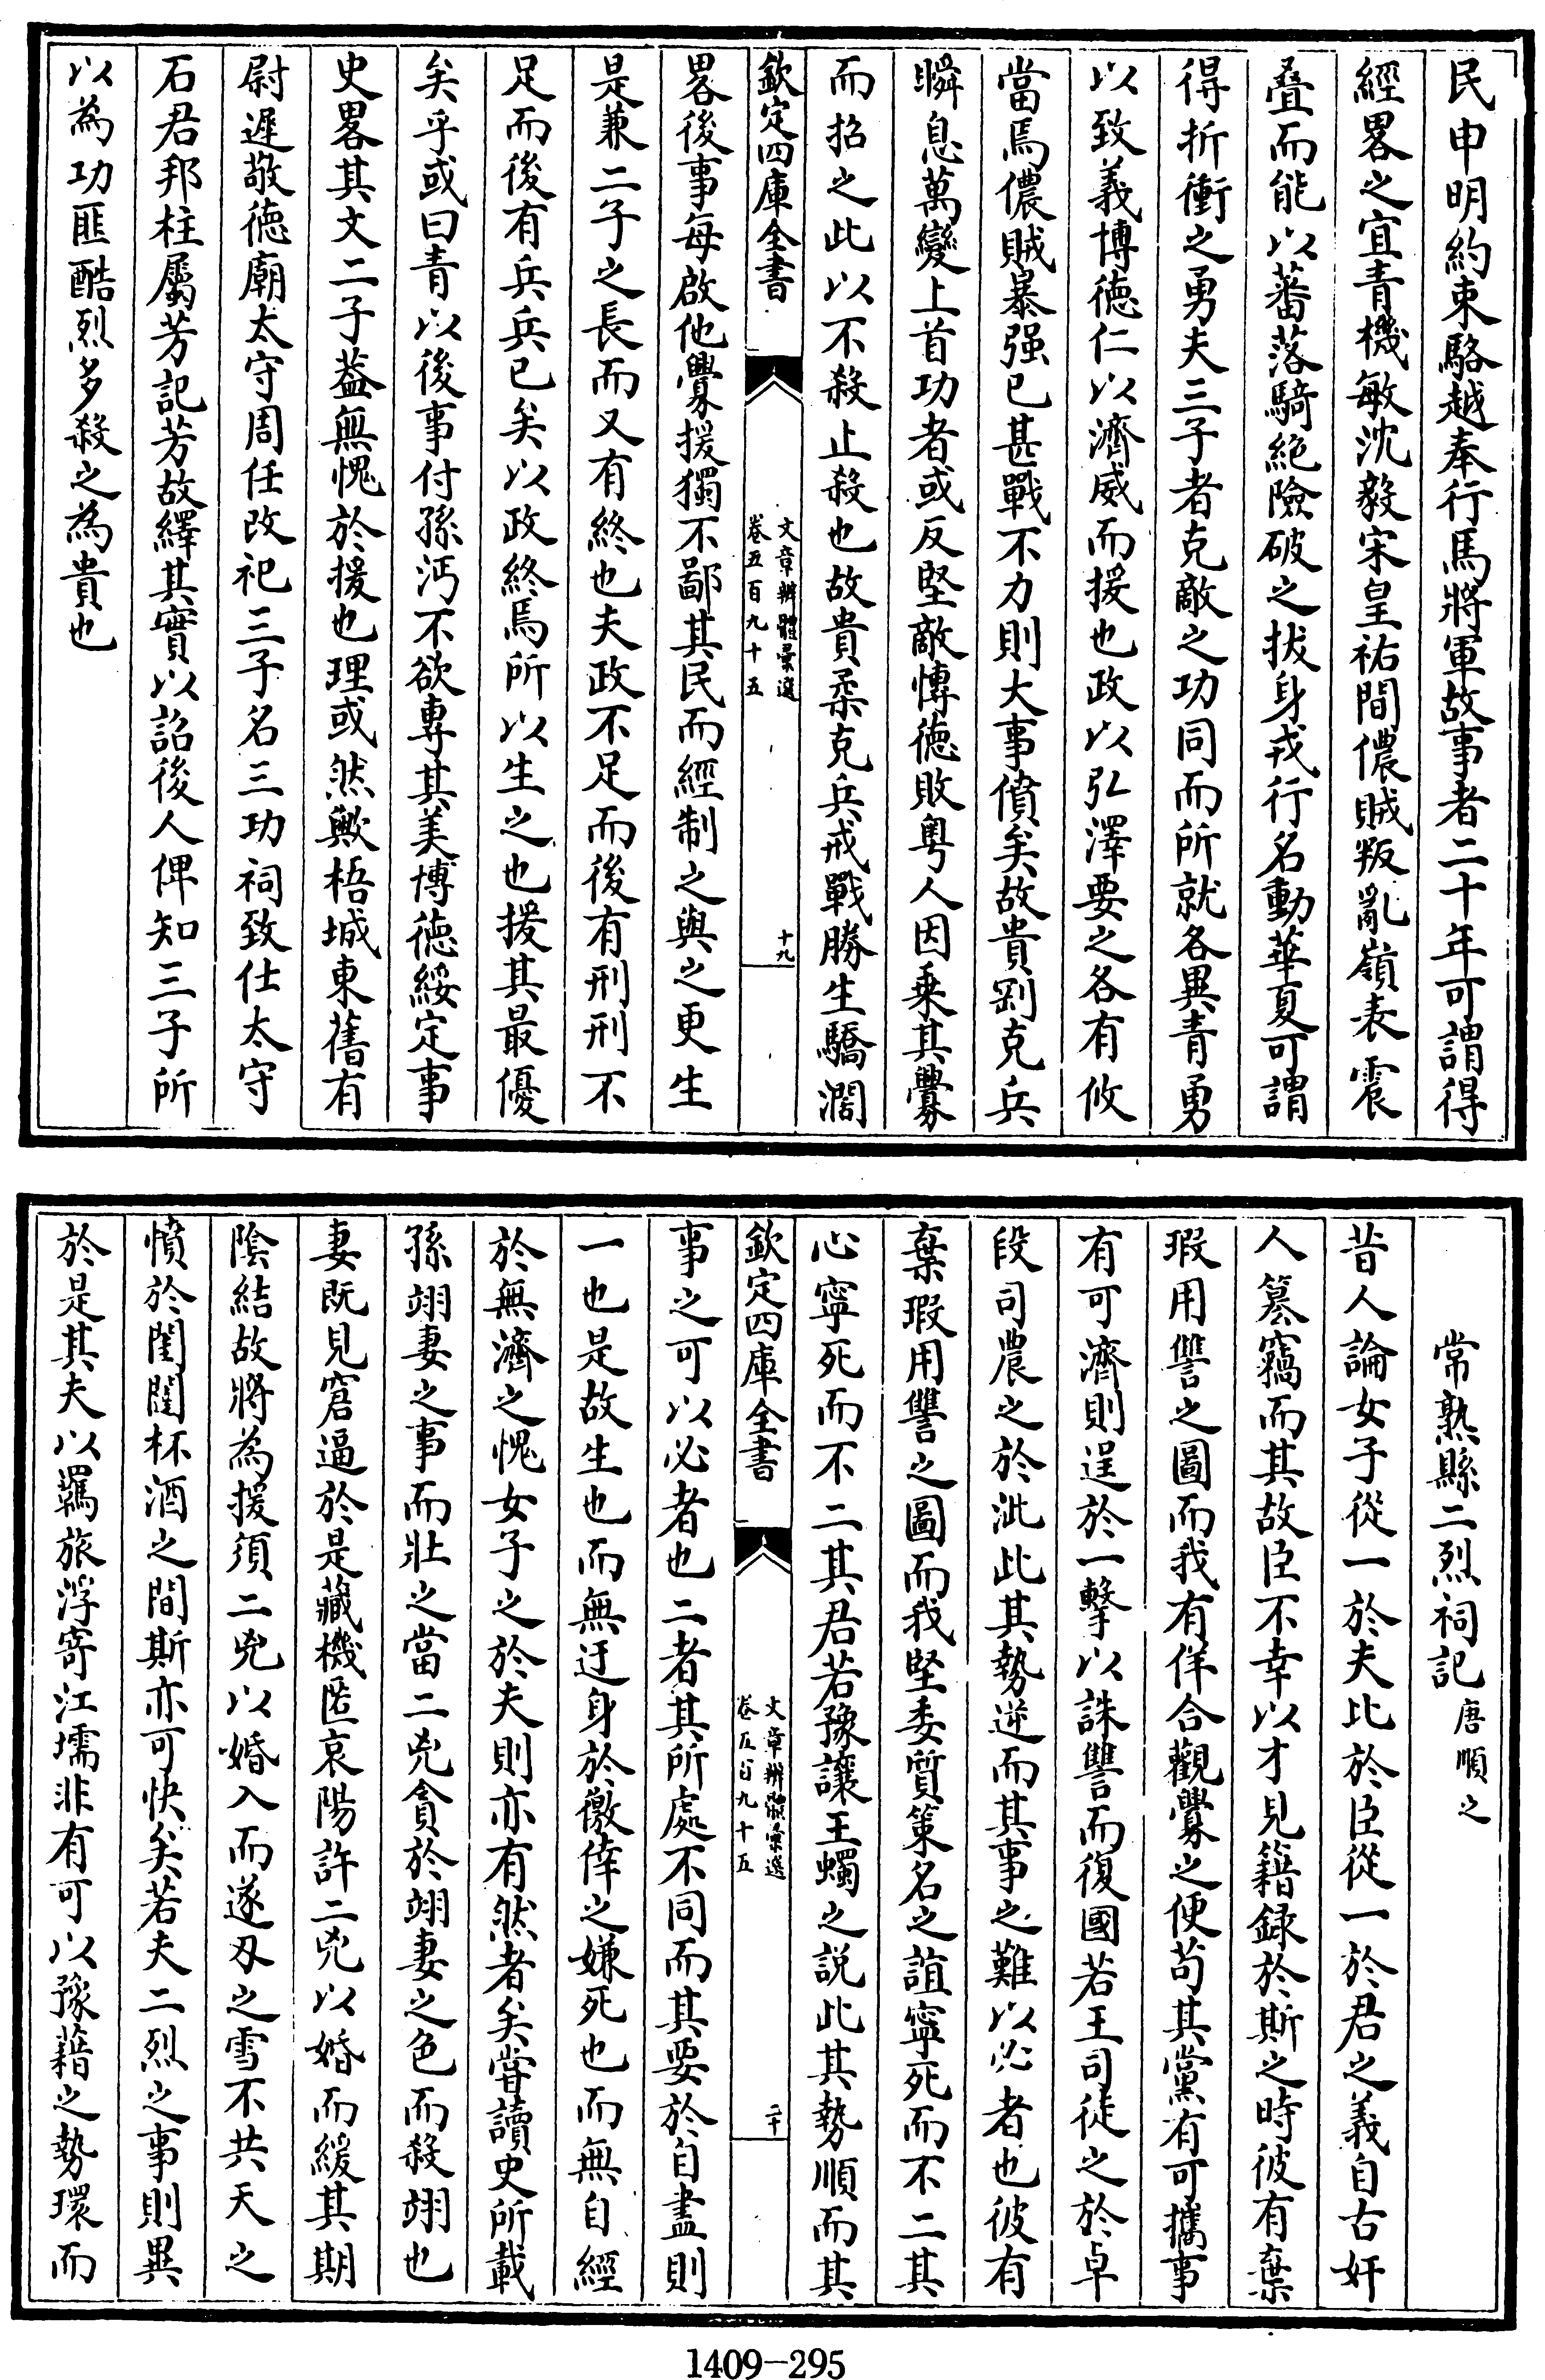 民申明約束駱越奉行馬將軍故事者二十年可謂得
經畧之宜青機敏沈毅宋皇祐間儂賊叛亂嶺表震
疊而能以蕃落騎絶險破之拔身戎行名動華夏可謂
得折衝之勇夫三子者克敵之功同而所就各異青勇
以致義博徳仁以濟威而援也政以弘澤要之各有攸
當焉儂賊暴强已甚戰不力則大事僨矣故貴剛克兵
瞬息萬變上首功者或反堅敵慱徳敗粤人因乗其釁
而招之此以不殺止殺也故貴柔克兵戒戰勝生驕濶
欽定四庫全書
文章辨體彚選
卷五百九十五
十九
畧後事每啟他釁援獨不鄙其民而經制之與之更生
是兼二子之長而又有終也夫政不足而後有刑刑不
足而後有兵兵已矣以政終焉所以生之也援其最優
矣乎或曰青以後事付孫沔不欲專其美博徳綏定事
史畧其文二子葢無愧於援也理或然歟梧城東舊有
尉遲敬徳廟太守周任改祀三子名三功祠致仕太守
石君邦柱屬芳記芳故繹其實以詔後人俾知三子所
以為功匪酷烈多殺之為貴也
常熟縣二烈祠記
唐順之
昔人論女子從一於夫比於臣從一於君之義自古奸
人簒竊而其故臣不幸以才見籍録於斯之時彼有棄
瑕用讐之圖而我有佯合觀釁之便茍其黨有可攜事
有可濟則逞於一擊以誅讐而復國若王司徒之於卓
段司農之於泚此其勢逆而其事之難以必者也彼有
棄瑕用讐之圖而我堅委質䇿名之誼寧死而不二其
心寧死而不二其君若豫讓王蠋之説此其勢順而其
欽定四庫全書
文章辨體彚選
卷五百九十五
二十
事之可以必者也二者其所處不同而其要於自盡則
一也是故生也而無迂身於徼倖之嫌死也而無自經
於無濟之愧女子之於夫則亦有然者矣甞讀史所載
孫翊妻之事而壯之當二兇貪於翊妻之色而殺翊也
妻既見窘逼於是藏機匿哀陽許二兇以婚而緩其期
陰結故將為援須二兇以婚入而遂刄之雪不共天之
憤於閨闥杯酒之間斯亦可快矣若夫二烈之事則異
於是其夫以羈旅浮寄江壖非有可以豫藉之勢環而
1409—295